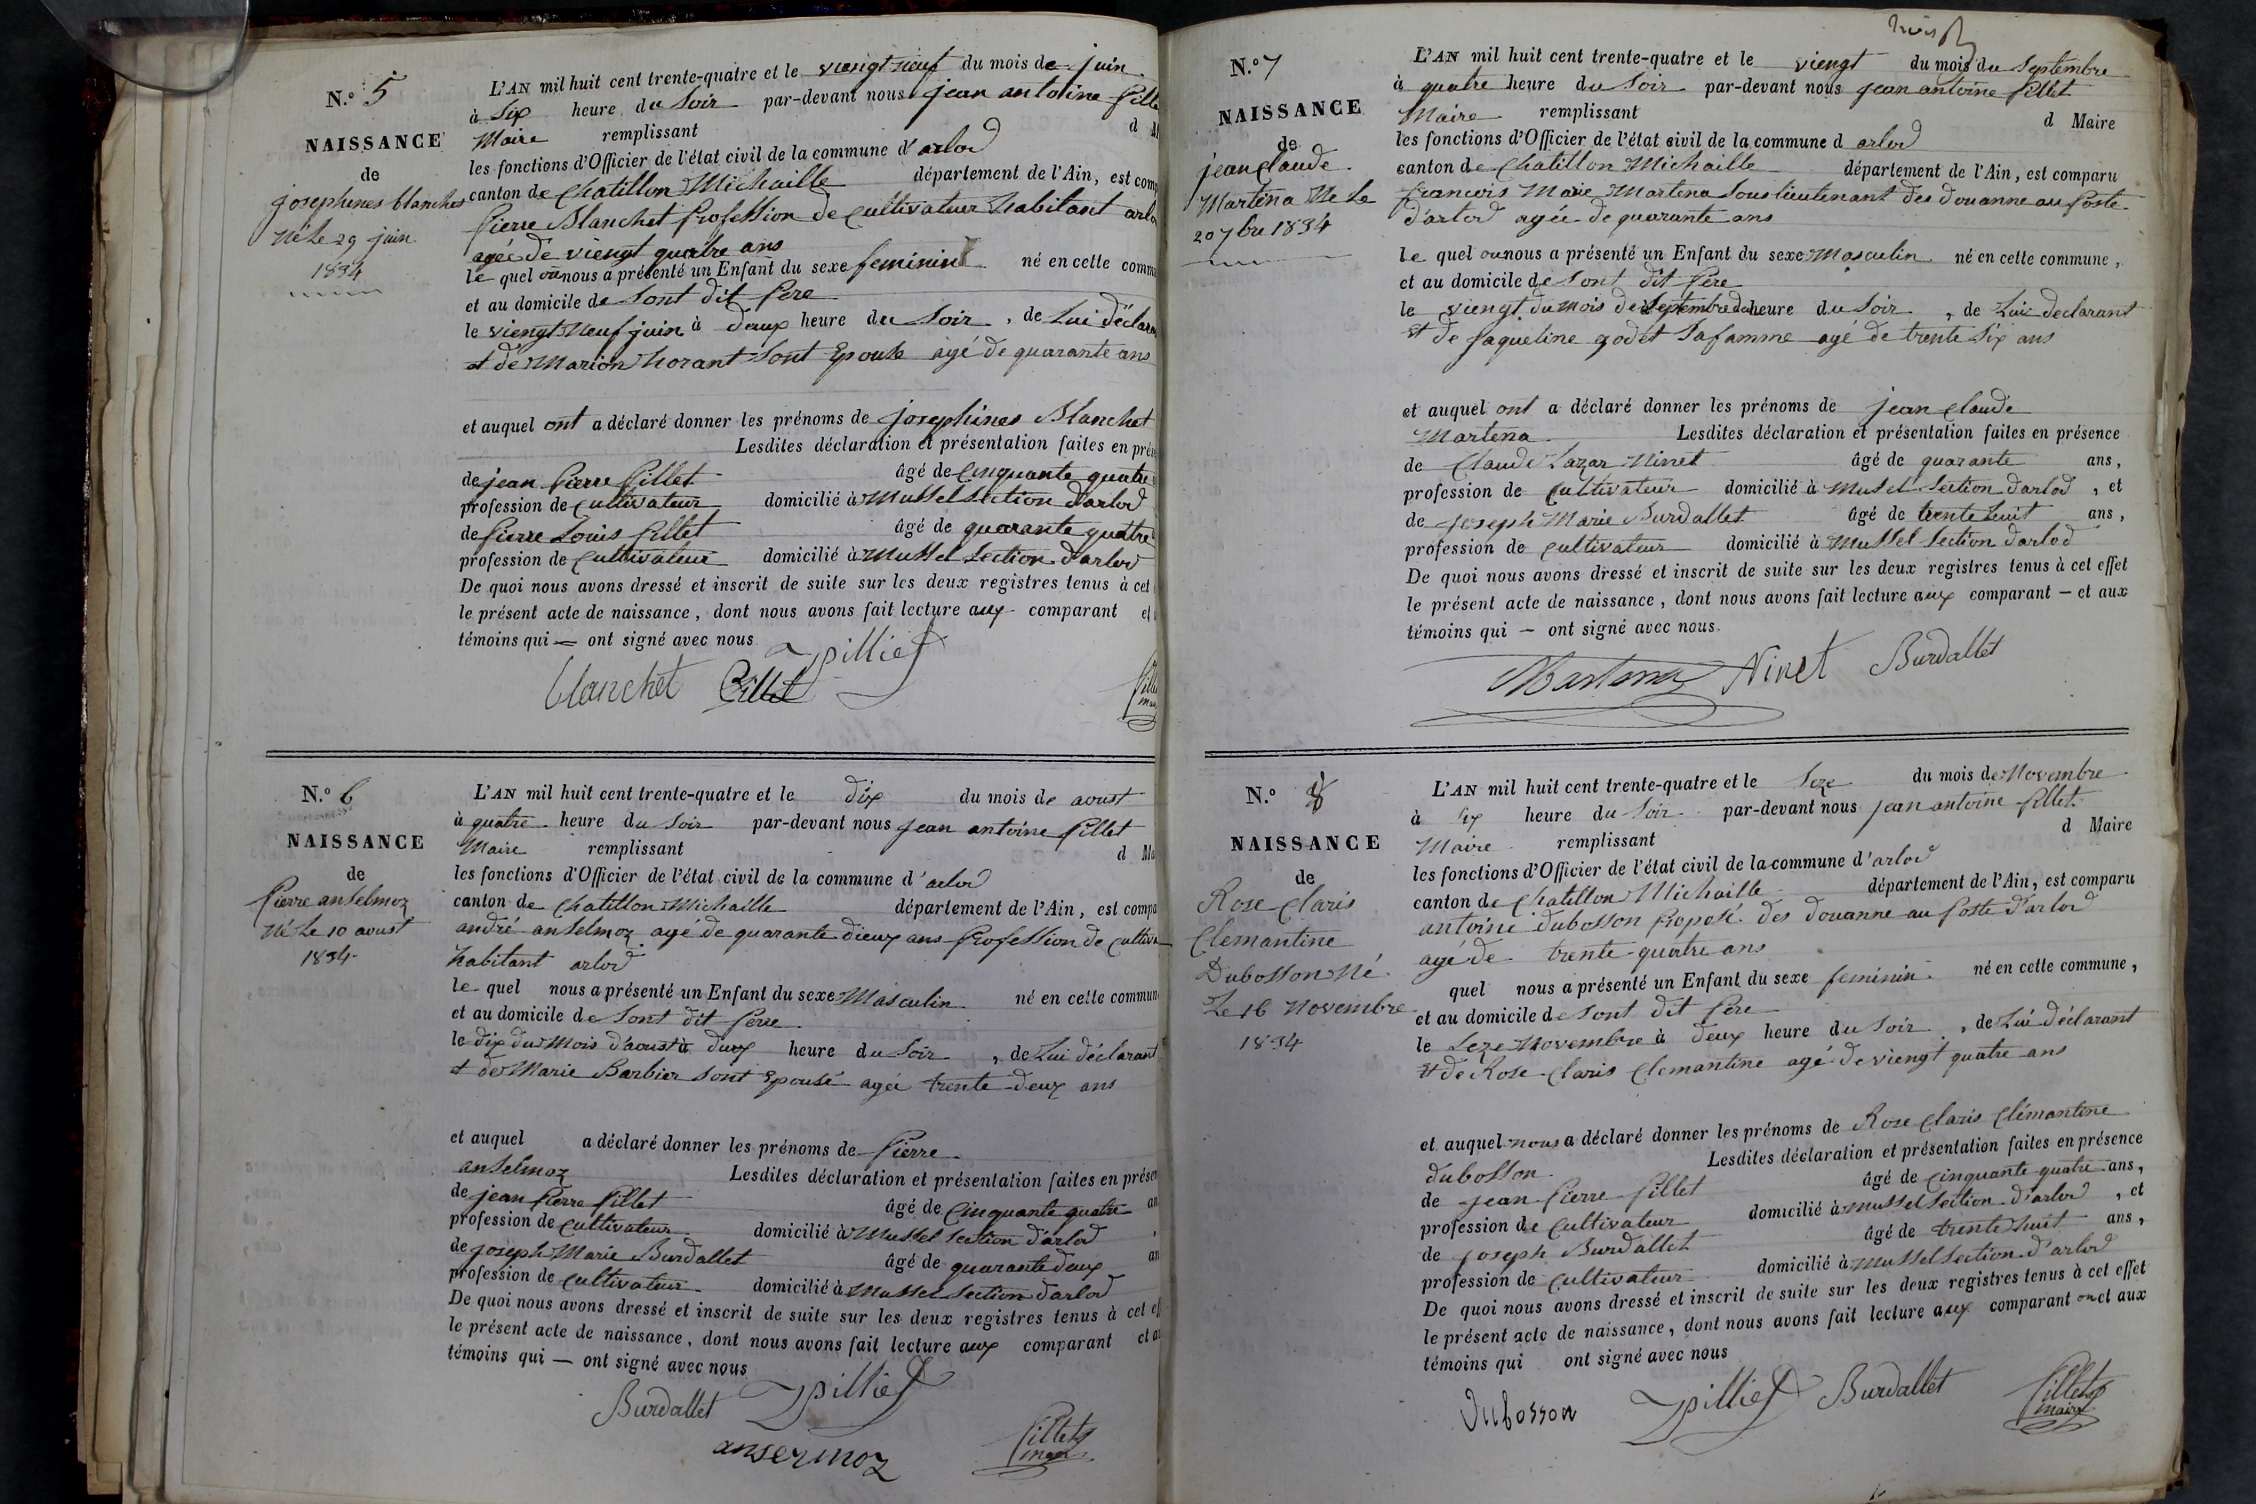 N.° 5
NAISSANCE
de
josephines blanches
Né Le 29 juin
1834
L'AN mil huit cent trente-quatre et le viengt neuf du mois de juin
à Six heure du Soir par-devant nous jean antoine Pille
Maire remplissant d M
les fonctions d'Officier de l'état civil de la commune d'arlod
canton de Chatillon Michaille département de l'Ain, est comp
Pierre Blanchet Profession de cultivateur habitant arlo
agée de viengt quatre ans
le quel nous a présenté un Enfant du sexe feminin né en cette comm
et au domicile de Sont dit Pere
le viengt Neuf juin à deux heure du Soir, de Lui déclara
et de Marion horant Sont Epouse agé de quarante ans
et auquel ont a déclaré donner les prénoms de josephines Blanchet
Lesdites déclaration et présentation faites en prés
de jean Pierre Pillet âgé de Cinquante quatre
profession de Cultivateur domicilié à Mussel Section d'arlod
de Pierre Louis Pillet âgé de quarante quattre
profession de Cultivateur domicilié à Mussel Section d'arlod
De quoi nous avons dressé et inscrit de suite sur les deux registres tenus à cet
le présent acte de naissance, dont nous avons fait lecture aux comparant et
témoins qui — ont signé avec nous
blanchet Pillet Pillet
N.° 6
NAISSANCE
de
Pierre anselmoz
Né Le 10 aoust
1834
L'AN mil huit cent trente-quatre et le dix du mois de aoust
à quatre heure du Soir par-devant nous jean antoine Pillet
Maire remplissant d Ma
les fonctions d'Officier de l'état civil de la commune d'arlod
canton de Chatillon Michaille département de l'Ain, est compa
andré anselmoz agé de quarante dieux ans Profession de Cultiva
habitant arlod
le quel nous a présenté un Enfant du sexe Masculin né en cette commun
et au domicile de Sont dit Perre
le dix du Mois d'aoust à dux heure du Soir, de Lui déclarant
et de Marie Barbier Sont Epousé agée trente-deux ans
et auquel a déclaré donner les prénoms de Pierre
anselmoz Lesdites déclaration et présentation faites en présen
de jean Pierre Pillet âgé de Cinquante quatre an
profession de Cultivateur domicilié à Mussel Section d'arlod,
de joseph Marie Burdallet âgé de quarante deux an
profession de Cultivateur domicilié à Mussel Section d'arlod
De quoi nous avons dressé et inscrit de suite sur les deux registres tenus à cet ef
le présent acte de naissance, dont nous avons fait lecture aux comparant et au
témoins qui — ont signé avec nous
Burdallet Pillet
ansermoz Pillet
maire
N.° 7
NAISSANCE
de
jean Claude
Martena Né Le
20 7bre 1834
L'AN mil huit cent trente-quatre et le viengt du mois du Septembre
à quatre heure du Soir par-devant nous jean antoine Pillet
Maire remplissant d Maire
les fonctions d'Officier de l'état civil de la commune d arlod
canton de Chatillon Michaille département de l'Ain, est comparu
francois Marie Martena Sous lieutenant des douanne au Poste
d'arlod agée de quarante ans
le quel nous a présenté un Enfant du sexe Masculin né en cette commune,
et au domicile de Sont dit Père
le viengt du Mois de Septembre heure du Soir, de Lui declarant
et de jaqueline godet Sa famme agé de trente Six ans
et auquel ont a déclaré donner les prénoms de jean Claude
Martena Lesdites déclaration et présentation faites en présence
de Claude Lazar Ninet âgé de quarante ans,
profession de Cultivateur domicilié à Musel Section d'arlod, et
de joseph Marie Burdallet âgé de trente huit ans,
profession de cultivateur domicilié à Mussel Section d'arlod
De quoi nous avons dressé et inscrit de suite sur les deux registres tenus à cet effet
le présent acte de naissance, dont nous avons fait lecture aux comparant — et aux
témoins qui — ont signé avec nous.
Martena Ninet Burdallet
N.° 8
NAISSANCE
de
Rose Claris
Clemantine
Dubosson Né
Le 16 Novembre
1834
L'AN mil huit cent trente-quatre et le Seze du mois de Novembre
à Six heure du Soir par-devant nous jean antoine Pillet
Maire remplissant d Maire
les fonctions d'Officier de l'état civil de la commune d'arlod
canton de Chatillon Michaille département de l'Ain, est comparu
antoine dubosson Preposé des douanne au Poste d'arlod
agé de trente-quatre ans
quel nous a présenté un Enfant du sexe feminin né en cette commune,
et au domicile de Sont dit Pere
le Seze Novembre à deux heure du Soir, de Lui déclarant
et de Rose Claris Clemantine agé de viengt quatre ans
et auquel nous a déclaré donner les prénoms de Rose Claris Clémantine
dubosson Lesdites déclaration et présentation faites en présence
de jean Pierre Pillet âgé de Cinquante quatre ans,
profession de Cultivateur domicilié à Mussel Section d'arlod, et
de joseph Burdallet âgé de trente huit ans,
profession de Cultivateur domicilié à Mussel Section d'arlod
De quoi nous avons dressé et inscrit de suite sur les deux registres tenus à cet effet
le présent acte de naissance, dont nous avons fait lecture aux comparant et aux
témoins qui ont signé avec nous
Dubosson Pillet Burdallet Pillet
maire